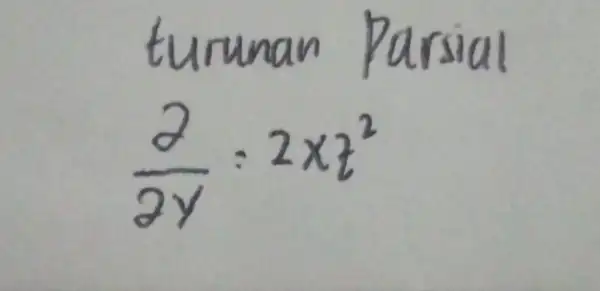 turunan Parsial
∂/∂y : 2xz²